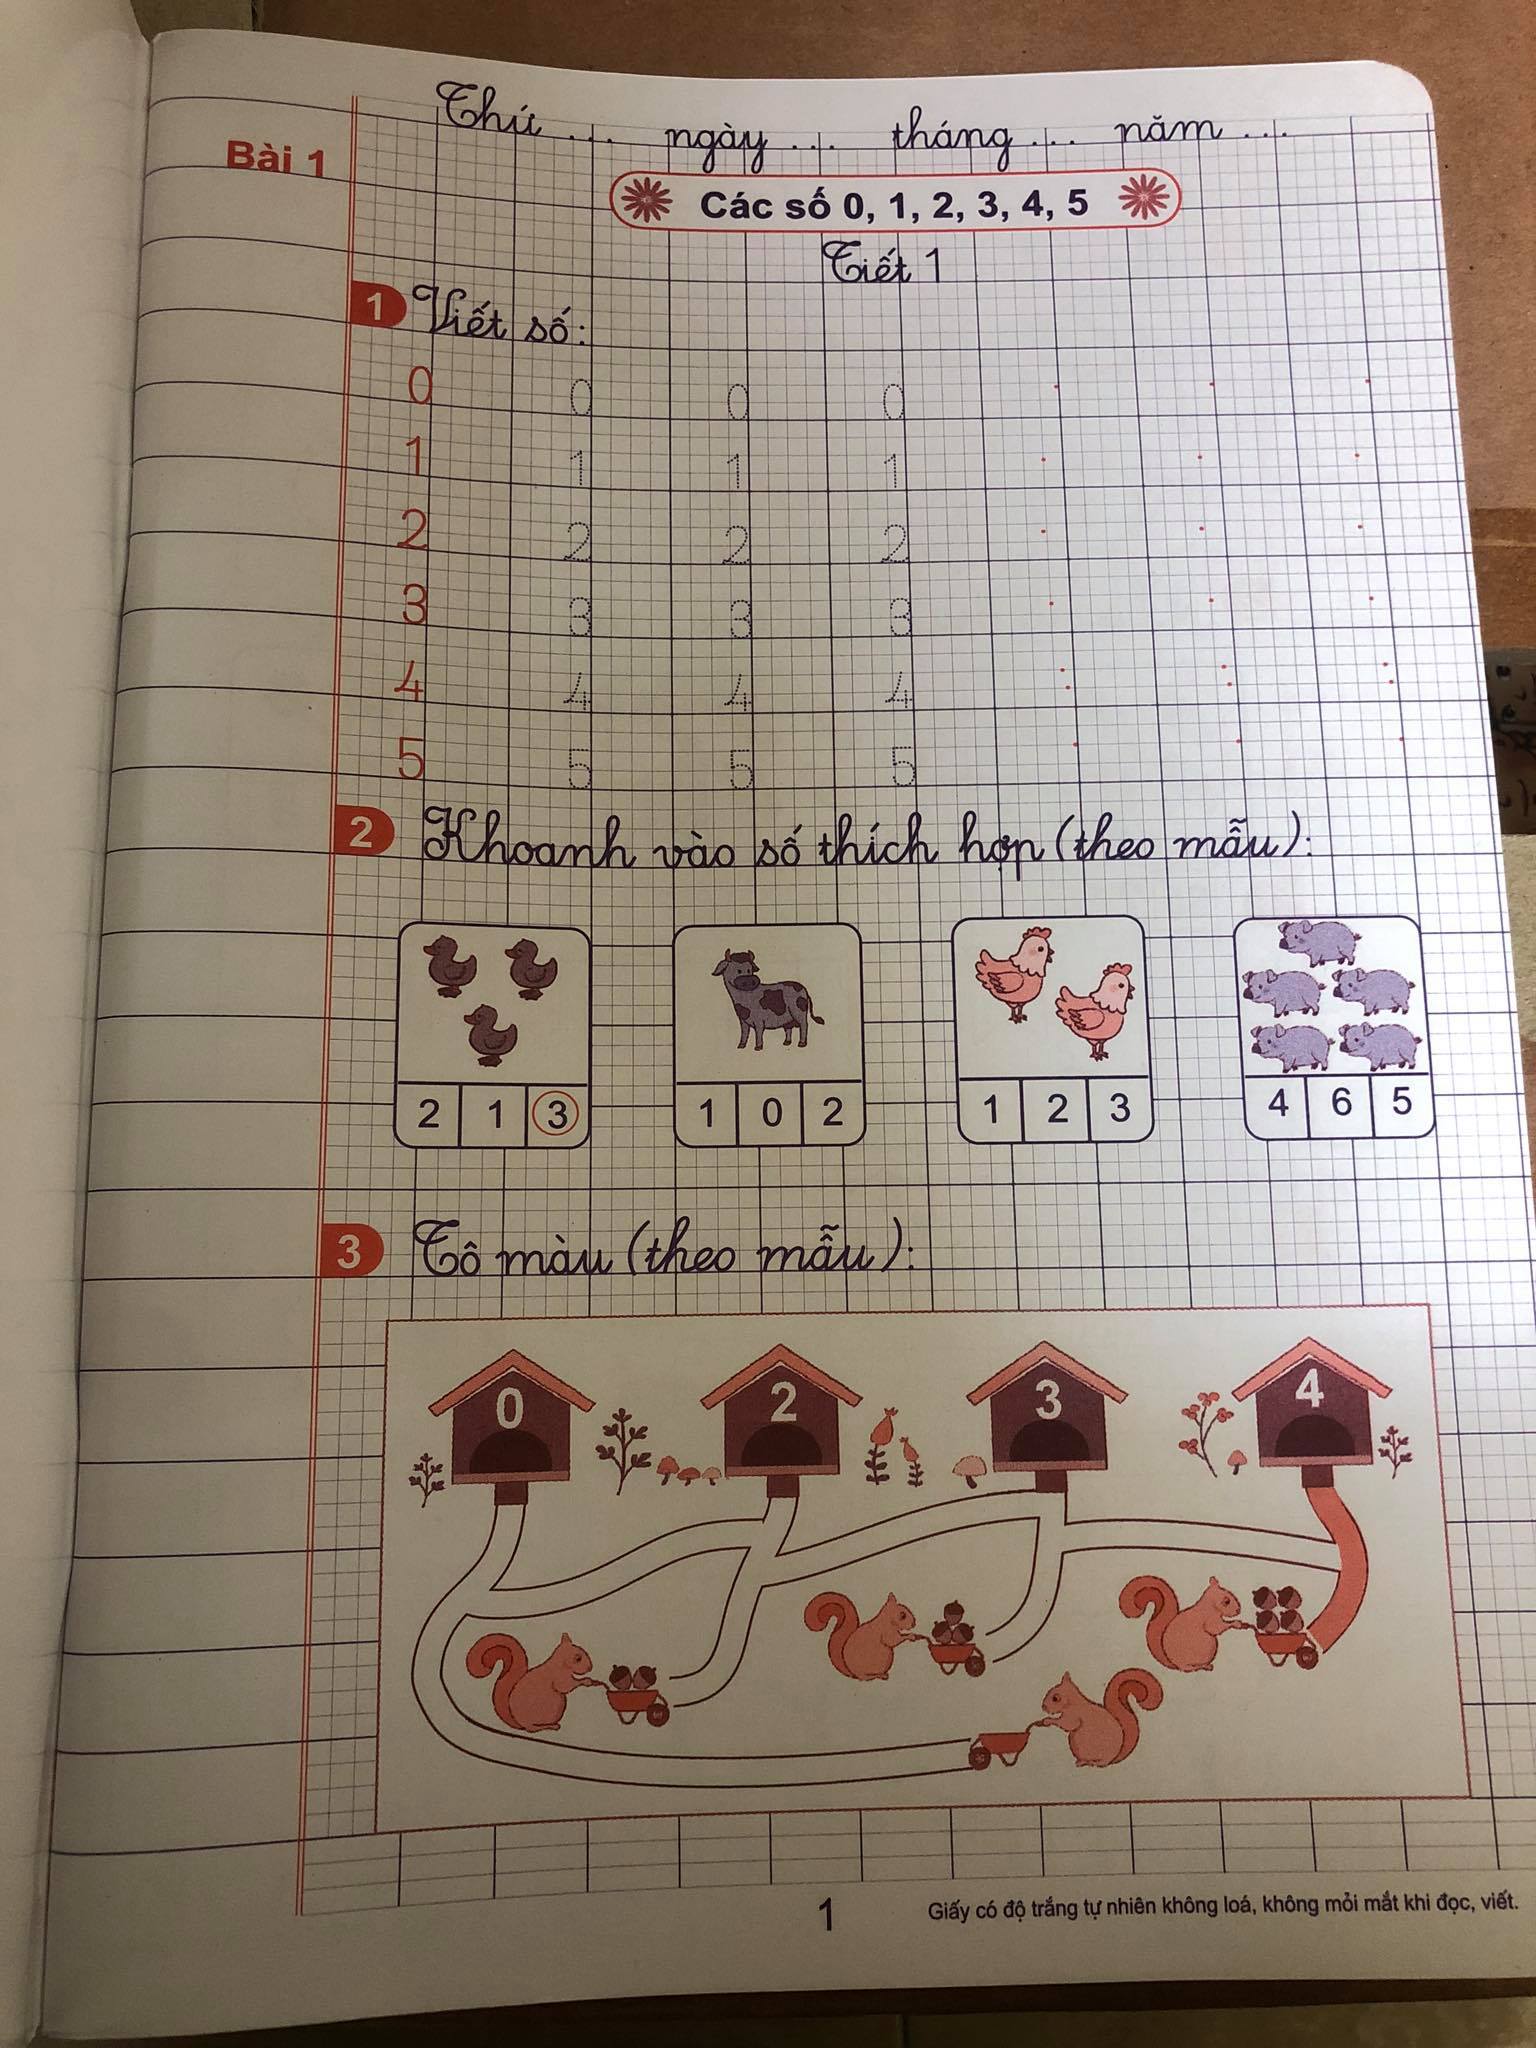 Thứ ... ngày ... tháng ... năm ...
Bài 1
Các số 0, 1, 2, 3, 4, 5
Tiết 1
1 Viết số:
0 0 0 0
1 1 1 1
2 2 2 2
3 3 3 3
4 4 4 4
5 5 5 5
2 Khoanh vào số thích hợp (theo mẫu):
2 1 3 1 0 2 1 2 3 4 6 5
3 Tô màu (theo mẫu):
0 2 3 4
1
Giấy có độ trắng tự nhiên không loá, không mỏi mắt khi đọc, viết.